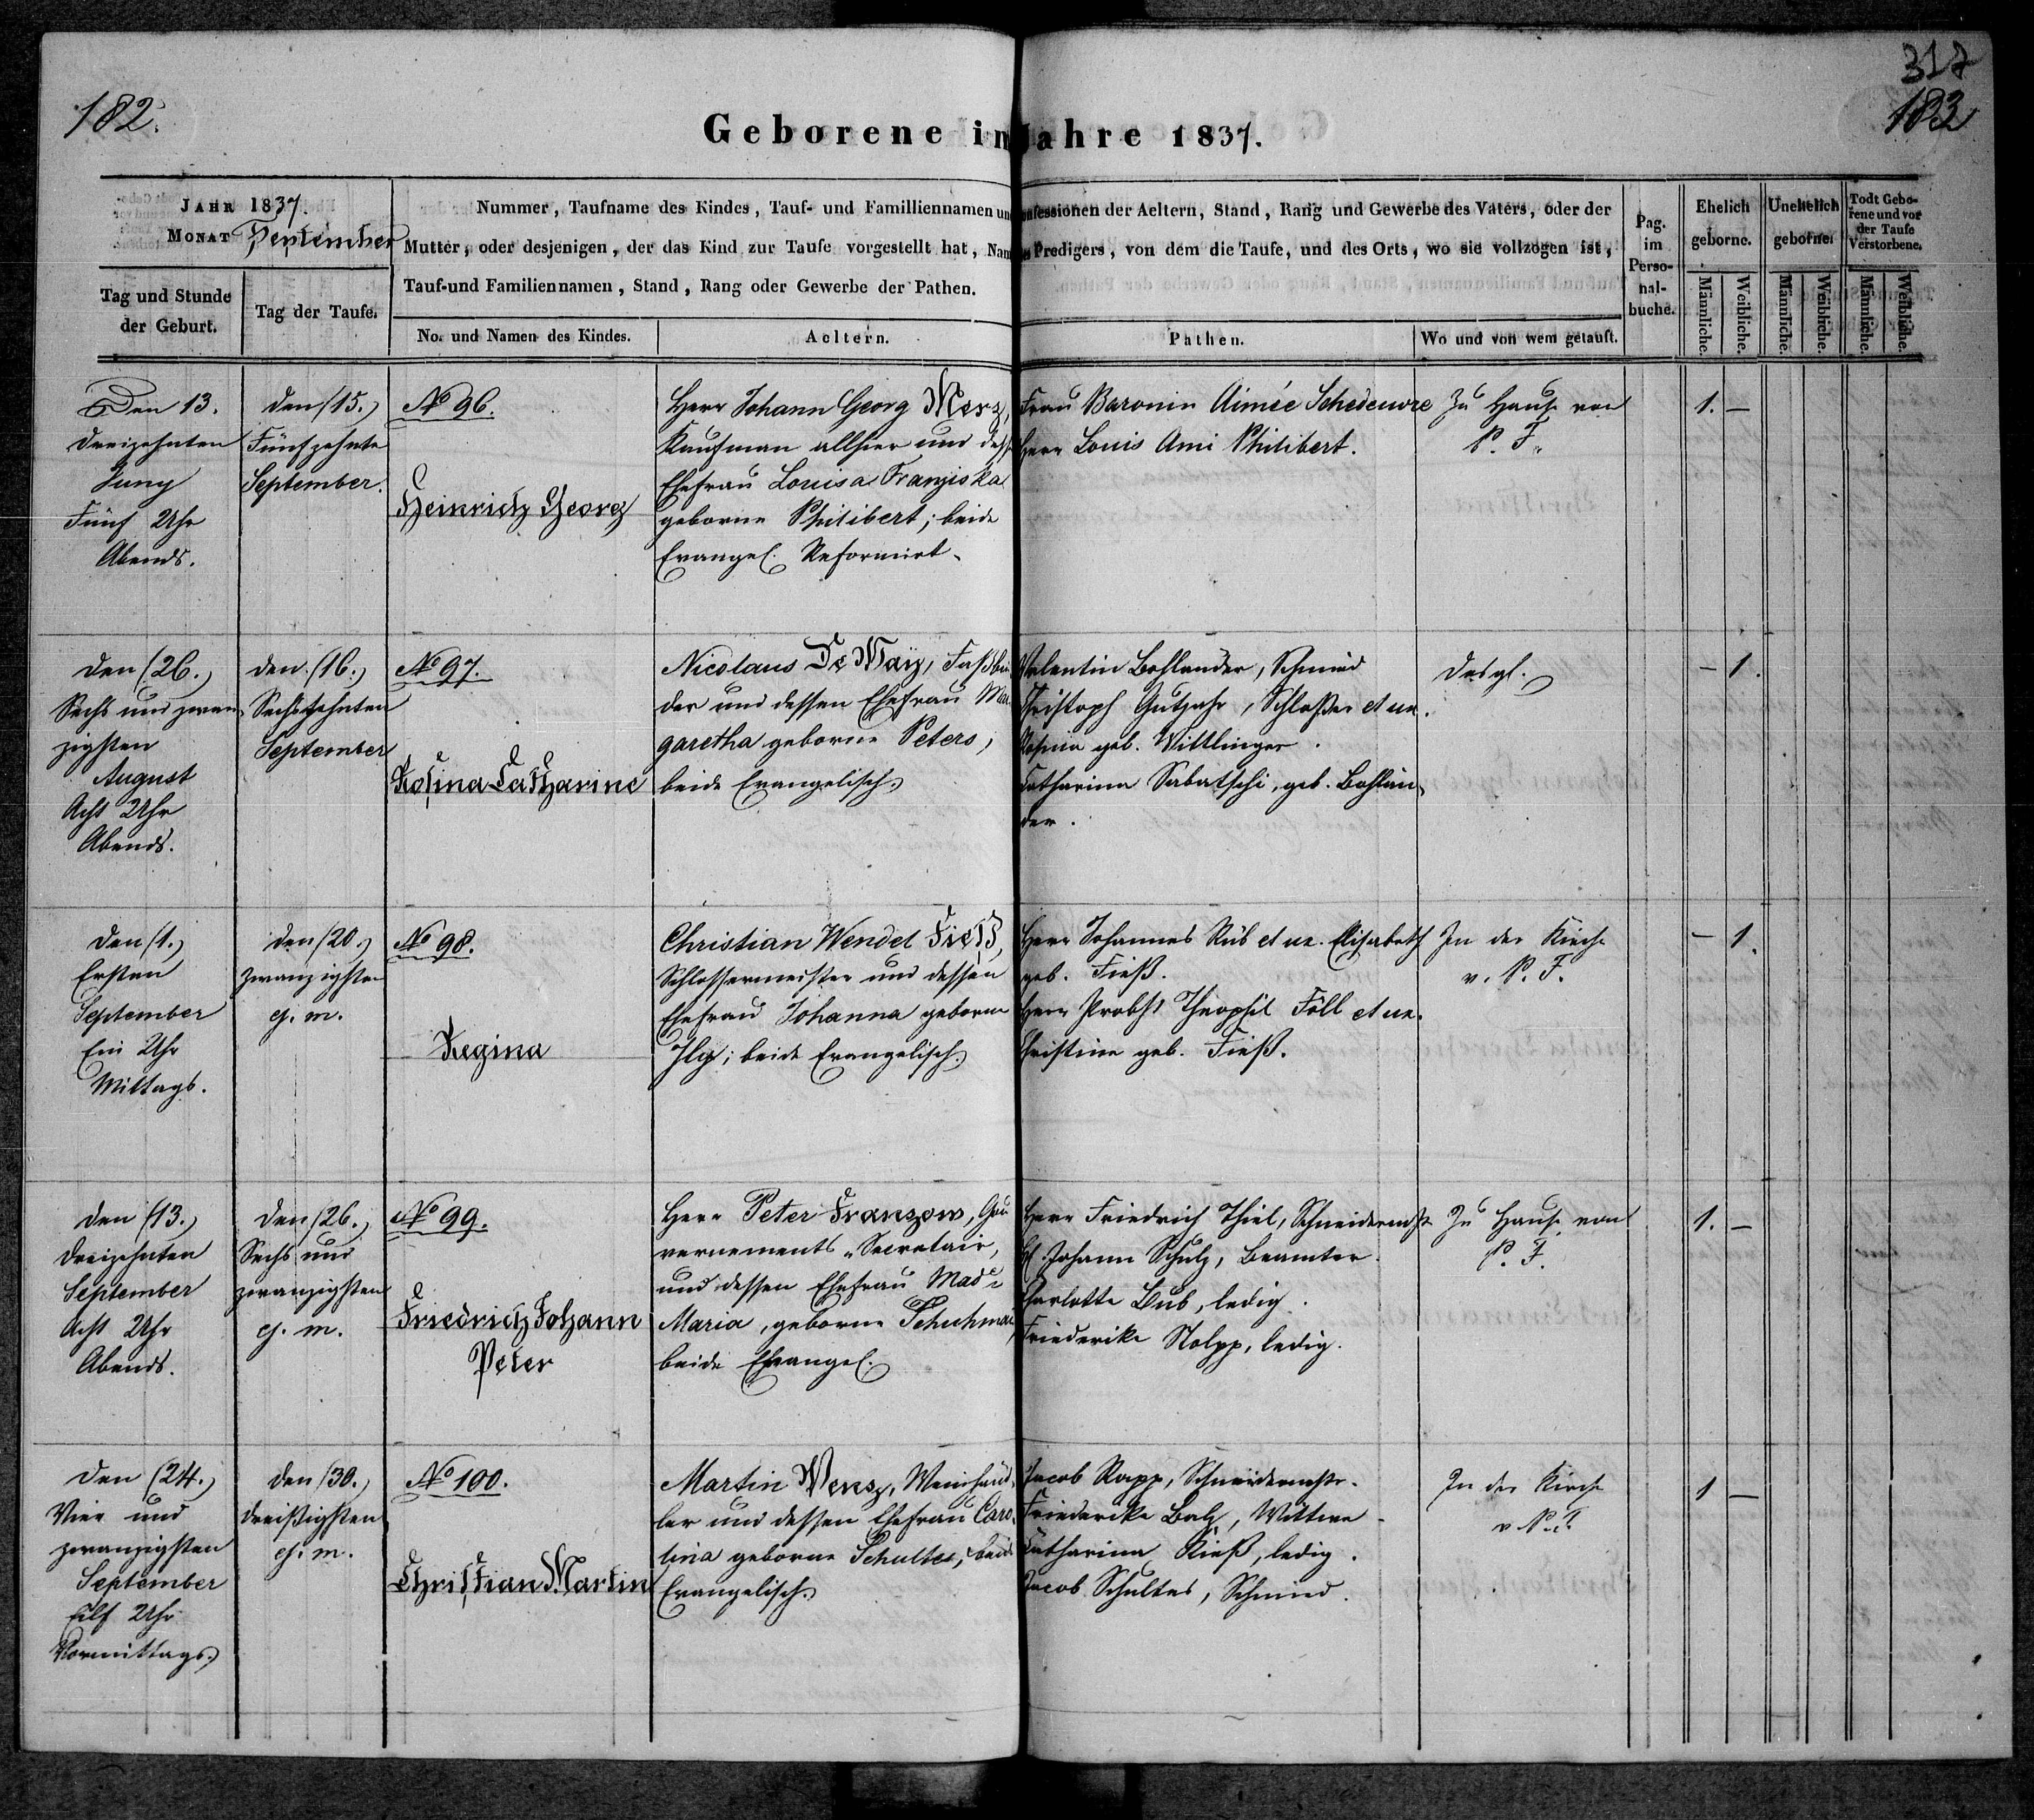 182.
317
183
Geborene im Jahre 1837.
JAHR 1837.
MONAT September
Tag und Stunde
der Geburt.
Tag der Taufe.
Nummer, Taufname des Kindes, Tauf- und Familliennamen und
Mutter, oder desjenigen, der das Kind zur Taufe vorgestellt hat, Nam
Tauf-und Familiennamen, Stand, Rang oder Gewerbe der Pathen.
No. und Namen des Kindes.
Aeltern.
onfessionen der Aeltern, Stand, Rang und Gewerbe des Vaters, oder der
es Predigers, von dem die Taufe, und des Orts, wo sie vollzogen ist,
Pathen.
Wo und von wem getauft.
Pag.
im
Perso-
nal-
buche.
Ehelich
geborne.
Unehelich
geborne.
Todt Gebo-
rene und vor
der Taufe
Verstorbene.
Männliche.
Weibliche.
Männliche.
Weibliche.
Männliche.
Weibliche.
Den 13.
dreizehnten
Juny
Fünf Uhr
Abends.
den (15.)
Fünfzehnte
September.
No 96.
Heinrich Georg
Herr Johann Georg Merz,
Kaufman allhier und dess
Ehefrau Louisa Franziska
geborne Philibert; beide
Evangel. Reformirt.
Frau Baronin Aimée Schedeuvre
Herr Louis Ami Philibert.
Zu Hause von
P. F.
1. —
den (26.)
Sechs und zwan
zigsten
August
Acht Uhr
Abends.
den (16.)
Sechszehnten
September
No 97.
Rosina Catharine
Nicolaus De May, Faßbin
der und dessen Ehefrau Mar
garetha geborne Peters;
beide Evangelisch.
Valentin Bohlander, Schmied
Christoph Gutjahr, Schloßer et ux.
Rosina geb. Wittlinger.
Catharina Sabatschi, geb. Bohlän
der.
desgl.
— 1.
den (1.)
Ersten
September
Ein Uhr
Mittags.
den (20.)
zwanzigsten
ej. m.
No 98.
Regina
Christian Wendel Fieß,
Schlossermeister und dessen
Ehefrau Johanna geborne
Ilg; beide Evangelisch.
Herr Johannes Rüb et ux. Elisabeth
geb. Fieß.
Herr Probst Theophil Föll et ux.
Christine geb. Fieß.
In der Kirche
v. P. F.
— 1.
den (13.)
dreizehnten
September
Acht Uhr
Abends.
den (26.)
Sechs und
zwanzigsten
ej. m.
No 99.
Friedrich Johann
Peter
Herr Peter Franzow, Gou
vernements-Secretair,
und dessen Ehefrau
Maria, geborne Schuhma
beide Evangel.
Herr Friedrich Thiel, Schneidermstr
Johann Schulz, Beamter.
Charlotte Bub, ledig.
Friederike Stolpp, ledig.
Zu Hause von
P. F.
1. —
den (24.)
Vier und
zwanzigsten
September
Eilf Uhr
Vormittags.
den (30.)
dreißigsten
ej. m.
No 100.
Christian Martin
Martin Wensz, Weinhänd
ler und dessen Ehefrau Caro
lina geborne Schultes, beide
Evangelisch.
Jacob Rapp, Schneidermstr.
Friederike Balz, Wittwe
Catharina Kieß, ledig.
Jacob Schultes, Schmied.
In der Kirche
v. P. F.
1 —